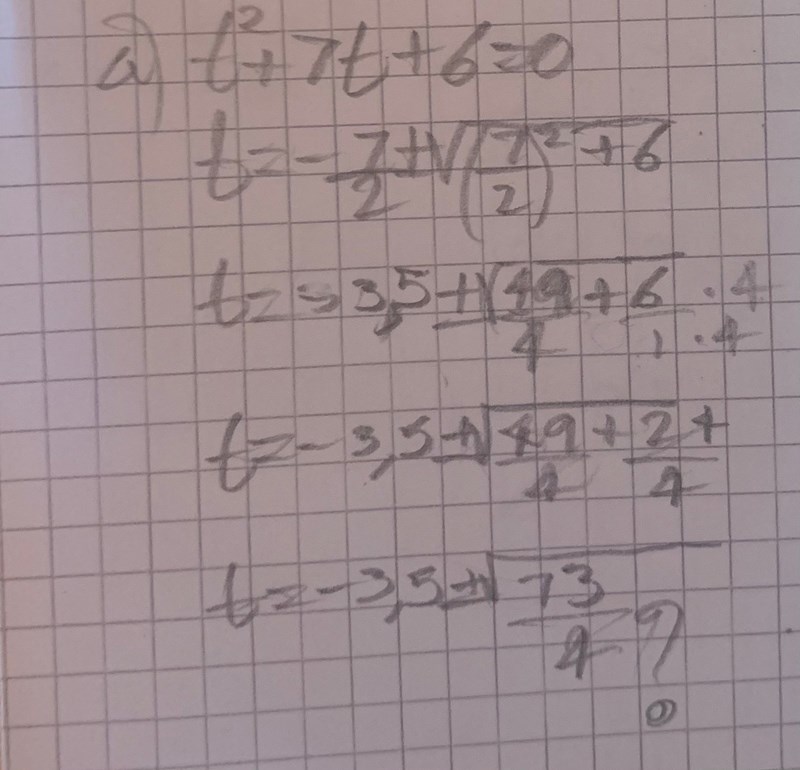 a) t²+7t+6=0
t=-7/2±√((7/2)²+6)
t=-3,5±√(49/4+6/1) ·4 ·4
t=-3,5±√(49/4+24/4)
t=-3,5±√(73/4) ?